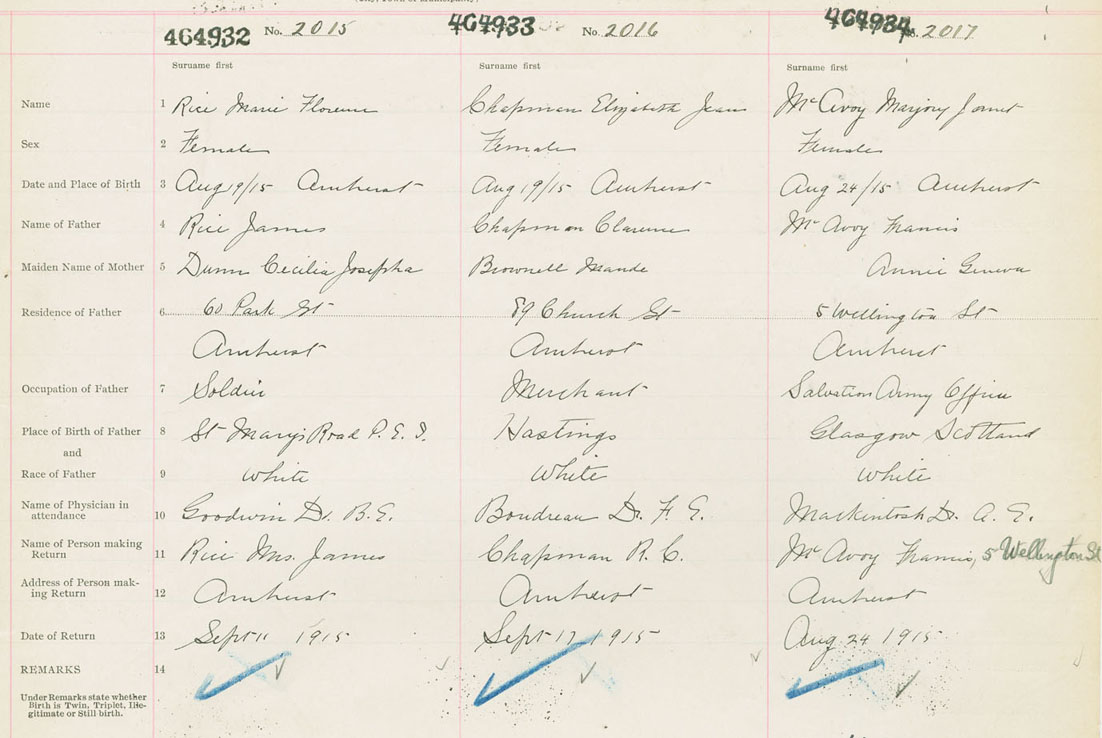 464932 No. 2015 464933 No. 2016 464934 No. 2017
Surname first Surname first Surname first
Name 1 Rice Marie Florence Chapman Elizabeth Jean McAvoy Marjory Janet
Sex 2 Female Female Female
Date and Place of Birth 3 Aug 19/15 Amherst Aug 19/15 Amherst Aug 24/15 Amherst
Name of Father 4 Rice James Chapman Clarence McAvoy Francis
Maiden Name of Mother 5 Dunn Cecilia Josepha Brownell Maude Annie Geneva
Residence of Father 6 60 Park St 89 Church St 5 Wellington St
Amherst Amherst Amherst
Occupation of Father 7 Soldier Merchant Salvation Army Officer
Place of Birth of Father 8 St Marys Road P. E. I. Hastings Glasgow Scotland
and
Race of Father 9 White White White
Name of Physician in
attendance 10 Goodwin Dr. B.E. Boudreau Dr. F. E. Mackintosh Dr. A. E.
Name of Person making
Return 11 Rice Mrs. James Chapman R. C. McAvoy Francis, 5 Wellington St
Address of Person mak-
ing Return 12 Amherst Amherst Amherst
Date of Return 13 Sept 11 1915 Sept 17 1915 Aug 24 1915
REMARKS 14
Under Remarks state whether
Birth is Twin, Triplet, Ille-
gitimate or Still birth.